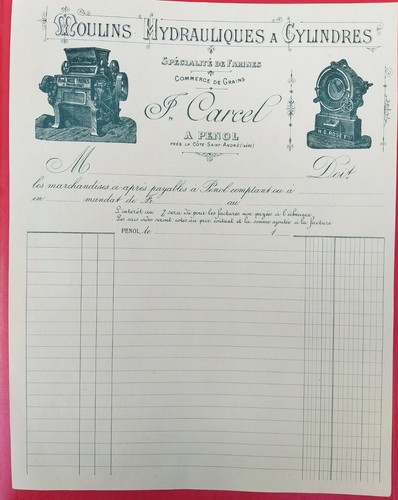 Moulins Hydrauliques a Cylindres
Spécialité de Farines
Commerce de Grains
Jn Carcel
A PENOL
PRÈS LA CÔTE-SAINT-ANDRÉ (ISÈRE)
M Doit
les marchandises ci-après payables à Penol comptant ou à
en mandat de Fr. au
L'intérêt au % sera dû pour les factures non payées à l'échéance.
Les sacs vides seront cotés au prix coûtant et la somme ajoutée à la facture
PENOL, le 1